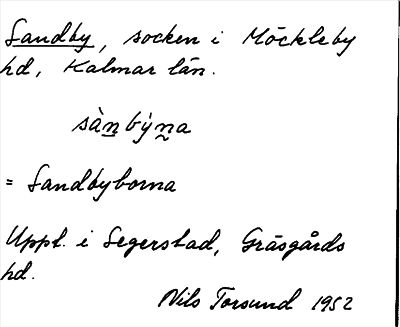 Sandby, socken i Möckleby
hd, Kalmar län.
sànbýna
= Sandbyborna
Uppt. i Segerstad, Gräsgårds
hd.
Nils Torsund 1952